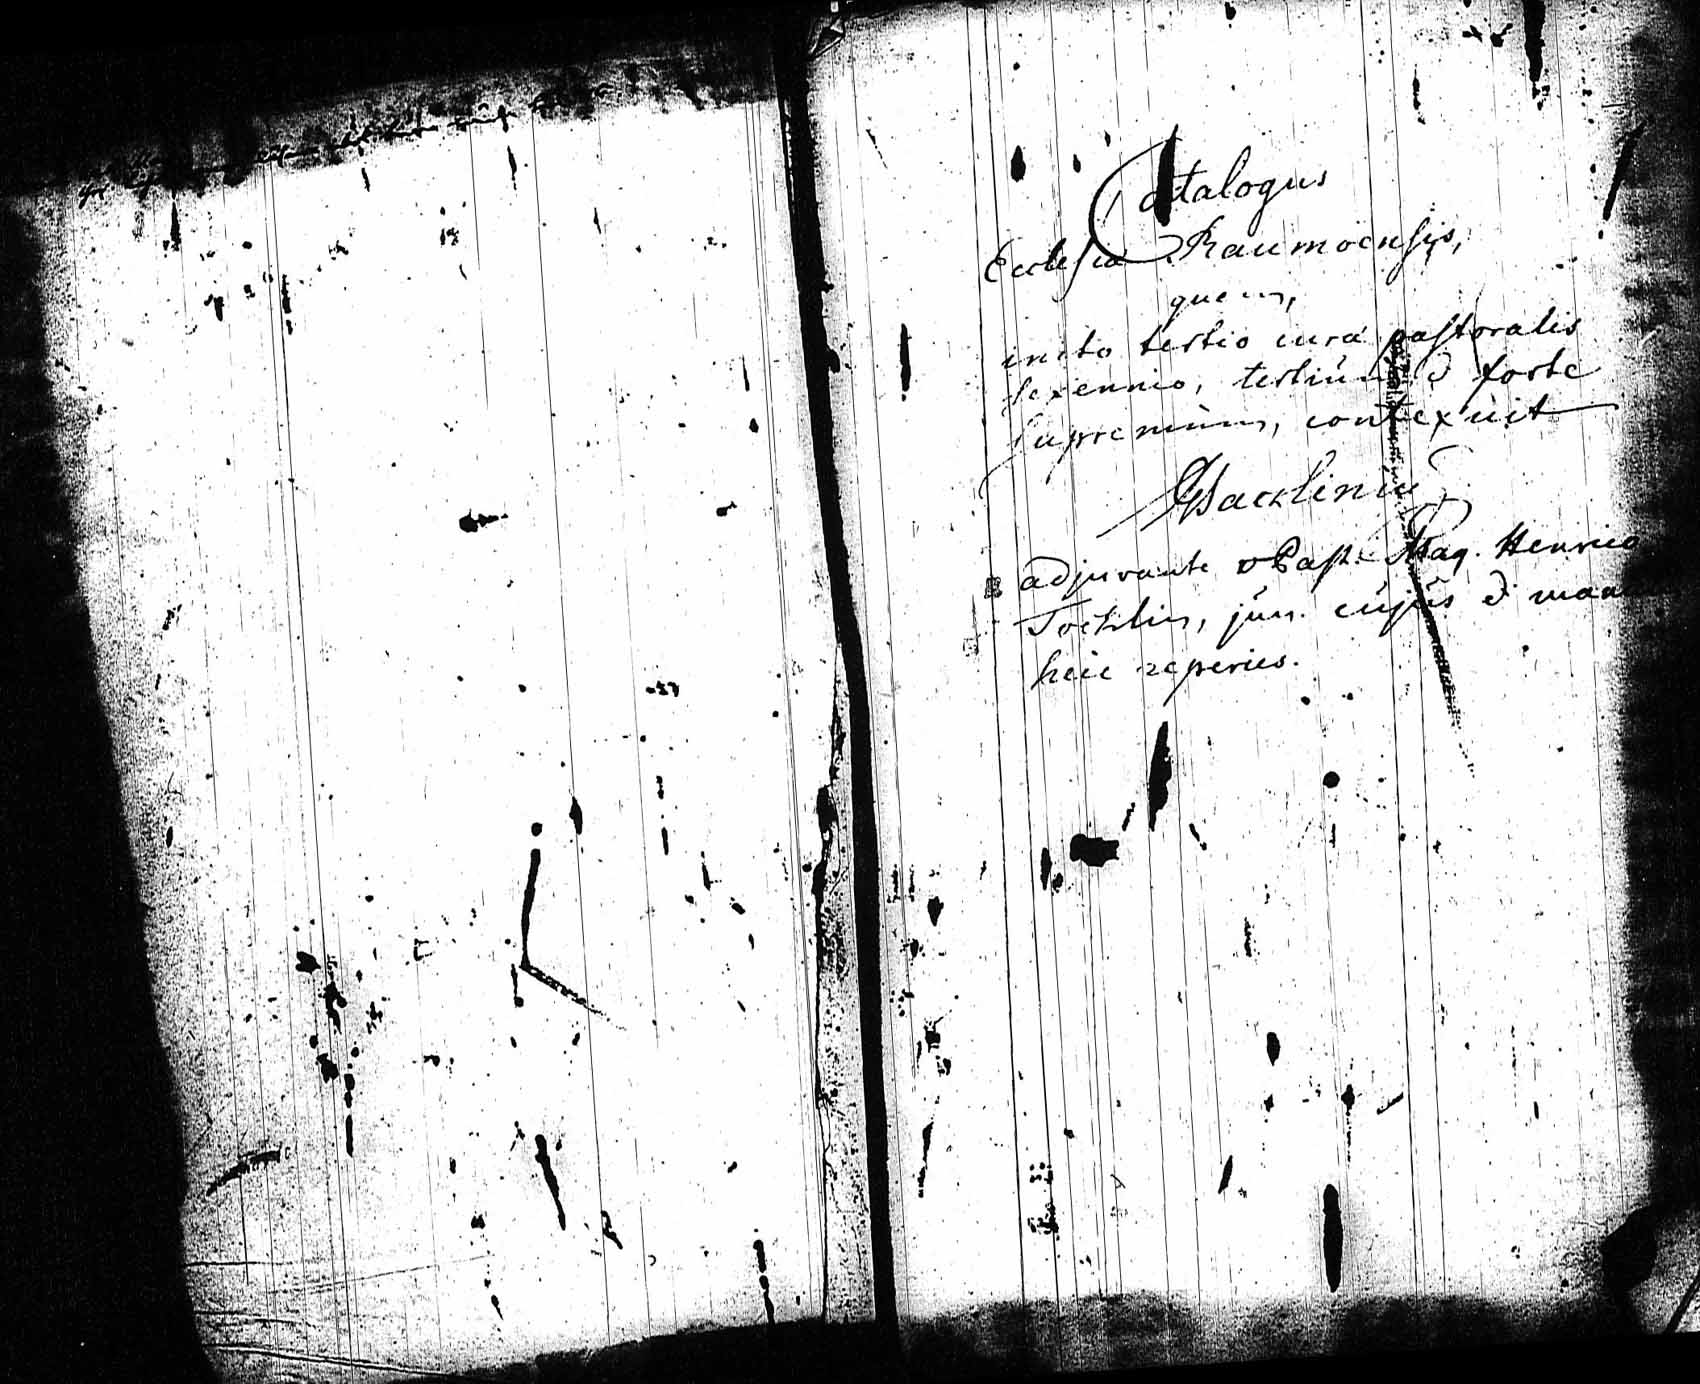 Catalogus
Ecclesiæ Raumoensis,
quem,
inito tertio curæ pastoralis
sexennio, tertium & forte
supremum, contexuit
adjuvante vPast. Mag. Henrico
jun. cujus & manum
heic reperies.